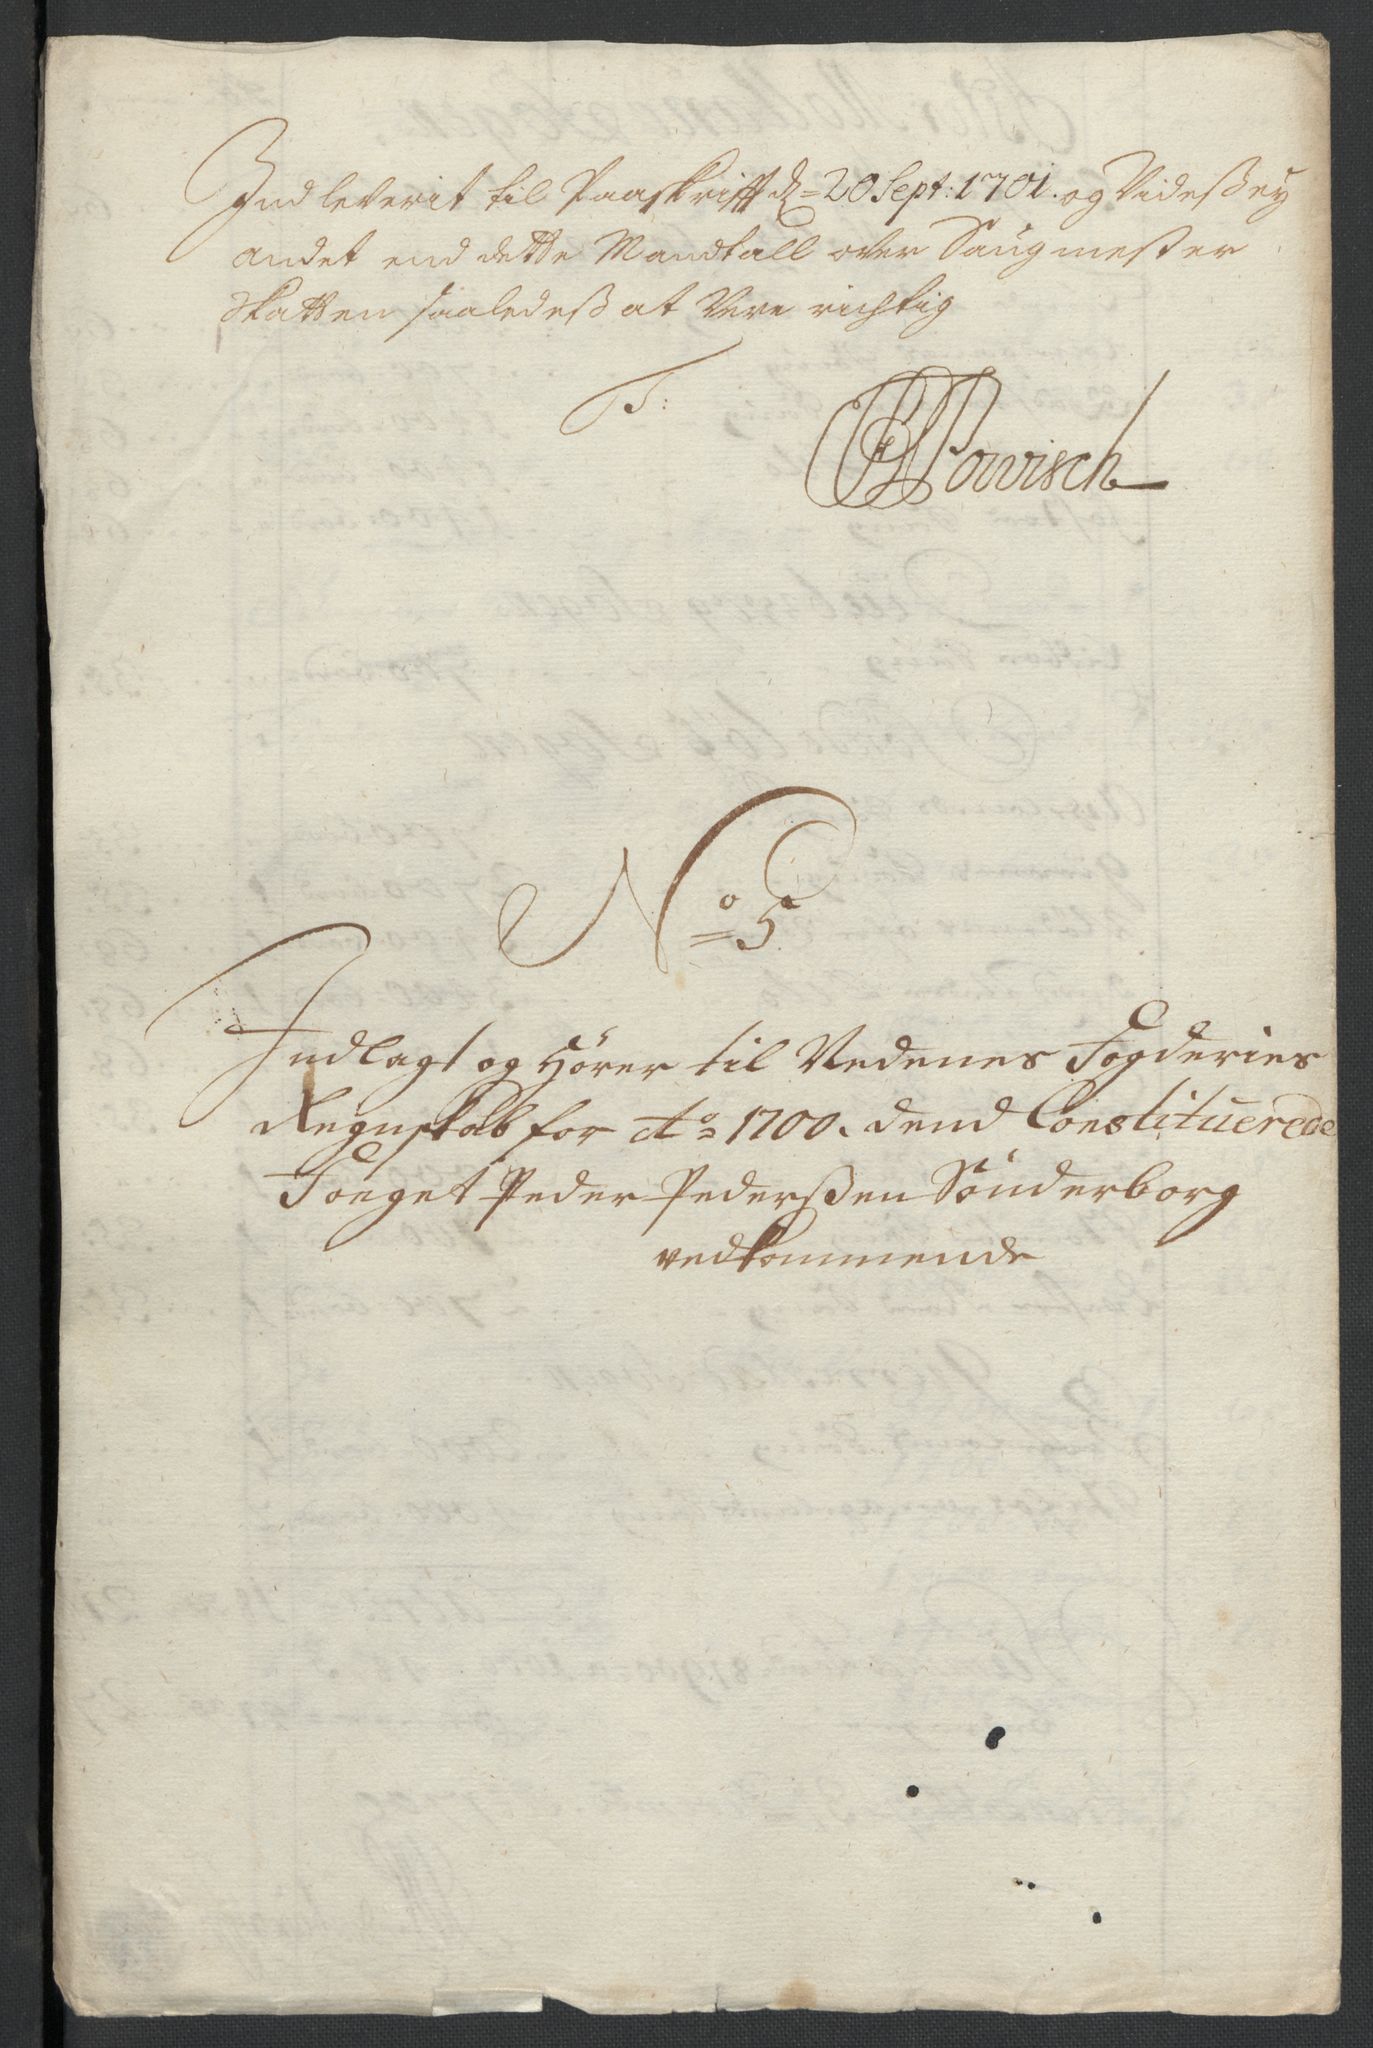 Indleverit til Paaskrifft d= 20 Sept: 1701. og Videß ey
andet end dette Mandtall over Saugmester
Skatten saaledeß at Vere richtig
T:
Powisch
No= 5
Indlagt og Hörer til Nedenes Fogderies
Regnskab for Ao= 1700. dend Constituerede
Foeget Peder Pederßen Sönderborg
vedkommende